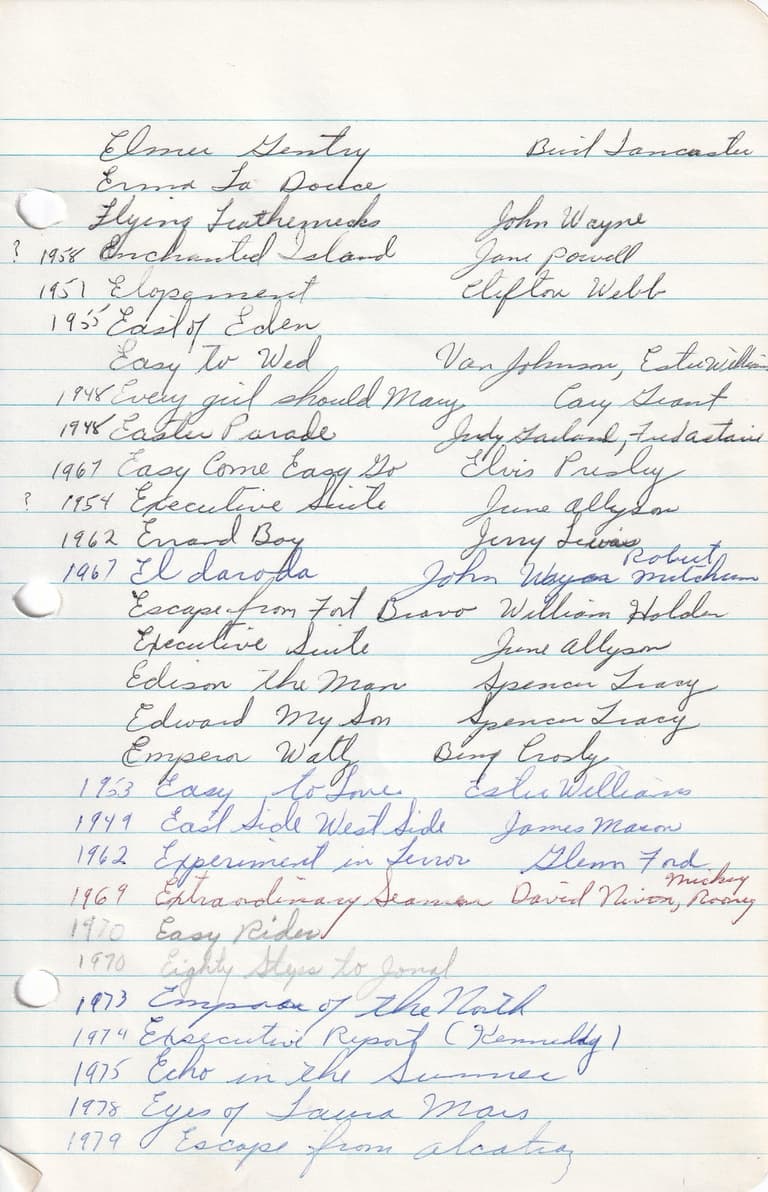 Elmer Gentry Burt Lancaster
Erma La Douce
Flying Leathernecks John Wayne
? 1958 Enchanted Island Jane Powell
1951 Elopement Clifton Webb
1955 East of Eden
Easy to Wed Van Johnson, Ester Williams
1948 Every girl should Marry Cary Grant
1948 Easter Parade Judy Garland, Fred Astaire
1967 Easy Come Easy Go Elvis Presley
? 1954 Executive Suite June Allyson
1962 Errand Boy Jerry Lewis
1967 El daroda John Wayne Robert Mitchum
Escape from Fort Bravo William Holden
Executive Suite June Allyson
Edison the Man Spencer Tracy
Edward My Son Spencer Tracy
Emperor Waltz Bing Crosby
1953 Easy to Love Ester Williams
1949 East Side West Side James Mason
1962 Experiment in Terror Glenn Ford
1969 Extraordinary Seaman David Niven, Mickey Rooney
1970 Easy Rider
1970 Eighty Steps to Jonah
1973 Emperor of the North
1974 Executive Report (Kennedy)
1975 Echo in the Summer
1978 Eyes of Laura Mars
1979 Escape from Alcatraz